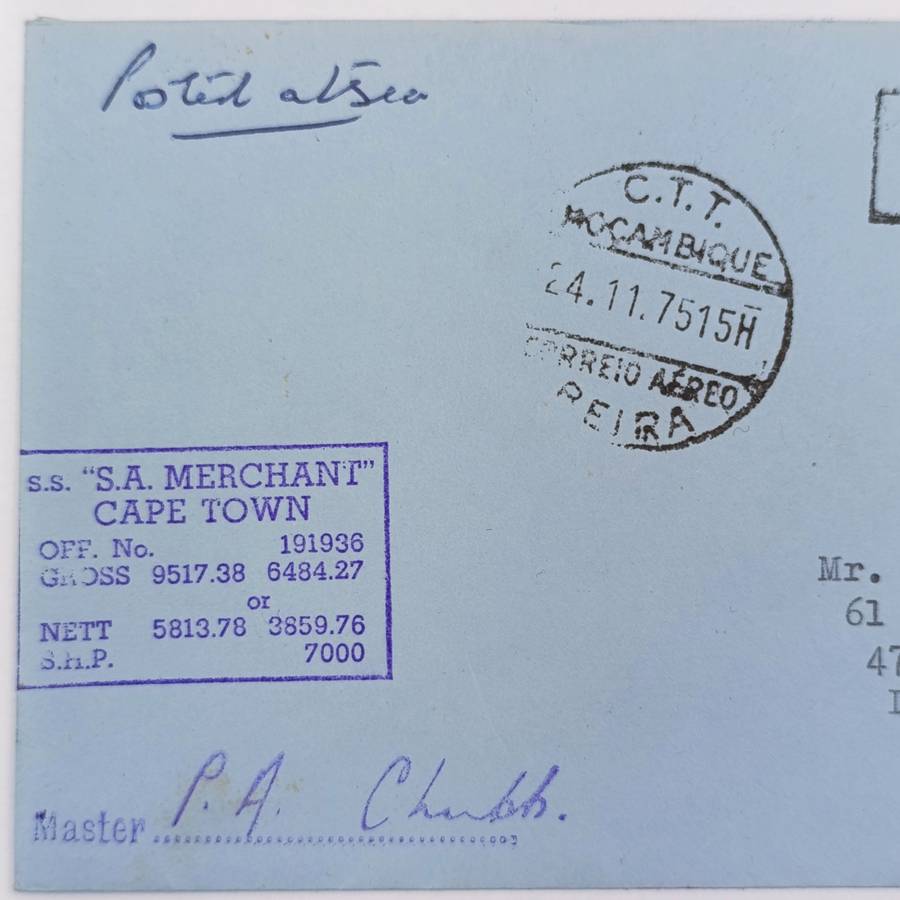 Posted at Sea
C.T.T.
MOÇAMBIQUE
24.11.75 15H
CORREIO AÉREO
BEIRA
S.S. “S.A. MERCHANT”
CAPE TOWN
OFF. No. 191936
GROSS 9517.38 6484.27
or
NETT 5813.78 3859.76
S.H.P. 7000
Mr.
61
47
Master P. A. Chubb.